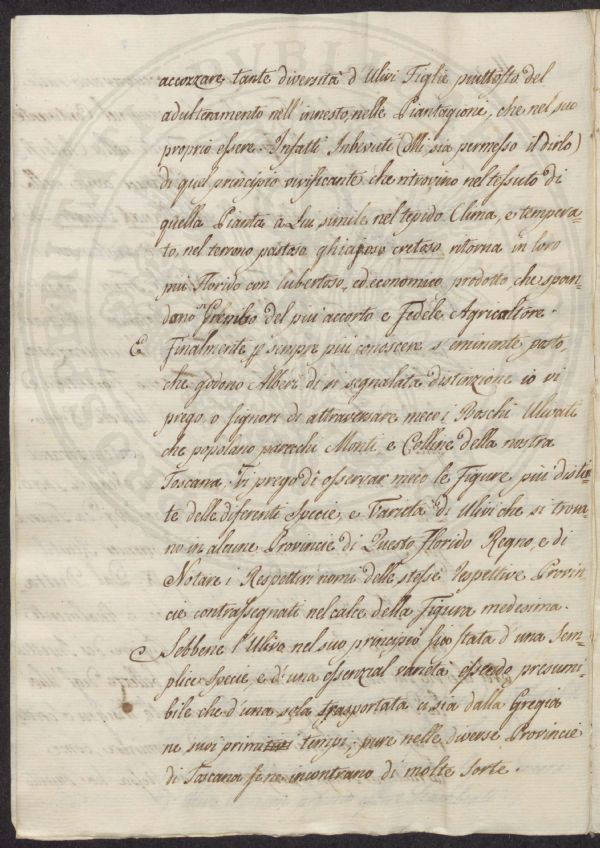 accozzare tante diversità d'Ulivi Figlie piuttosto del
adulteramento nell'innesto, nelle Piantagioni, che nel suo
proprio essere. Infatti Imbevuti (Mi sia permesso il dirlo)
di quel principio vivificante che ritrovino nel tessuto di
quella Pianta a Lui simile nel tepido Clima, e tempera-
to, nel terreno pastoso, ghiajoso, cretoso ritorna in loro
più Florido con lubertoso, ed economico prodotto, che span-
dano in Grembo del più accorto e Fedele Agricoltore.
E Finalmente p sempre più conoscere sì eminente posto,
che godono Alberi di sì segnalata distinzione io vi
prego, o Signori di attraversare meco i Boschi Ulivati
che popolano parecchi Monti, e Colline della nostra
Toscana. Vi prego di osservar meco le Figure più distin-
te delle diferenti Specie, e Varietà di Ulivi che si trova-
no in alcune Provincie di Questo Florido Regno, e di
Notare i Respettivi nomi delle stesse respettive Provin-
cie contrassegnati nel calce della Figura medesima.
Sebbene l'Ulivo nel suo principio sia stata d'una Sem-
plice Specie, e d'una essenzial varietà essendo presumi-
bile che d'una sola trasportata ci sia dalla Grecia
ne suoi primi tempi; pure nelle diverse Provincie
di Toscana se ne incontrano di molte sorte.